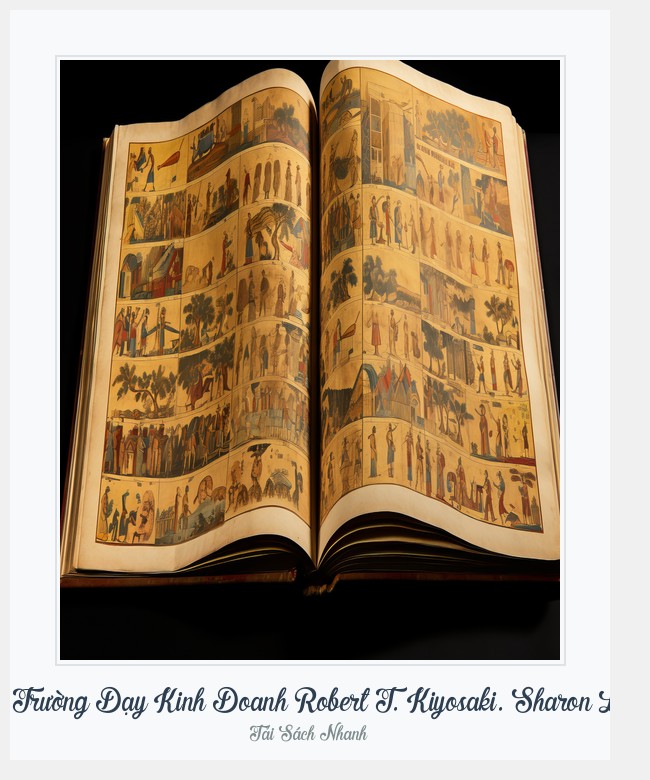 Trường Dạy Kinh Doanh Robert T. Kiyosaki. Sharon
Tải Sách Nhanh